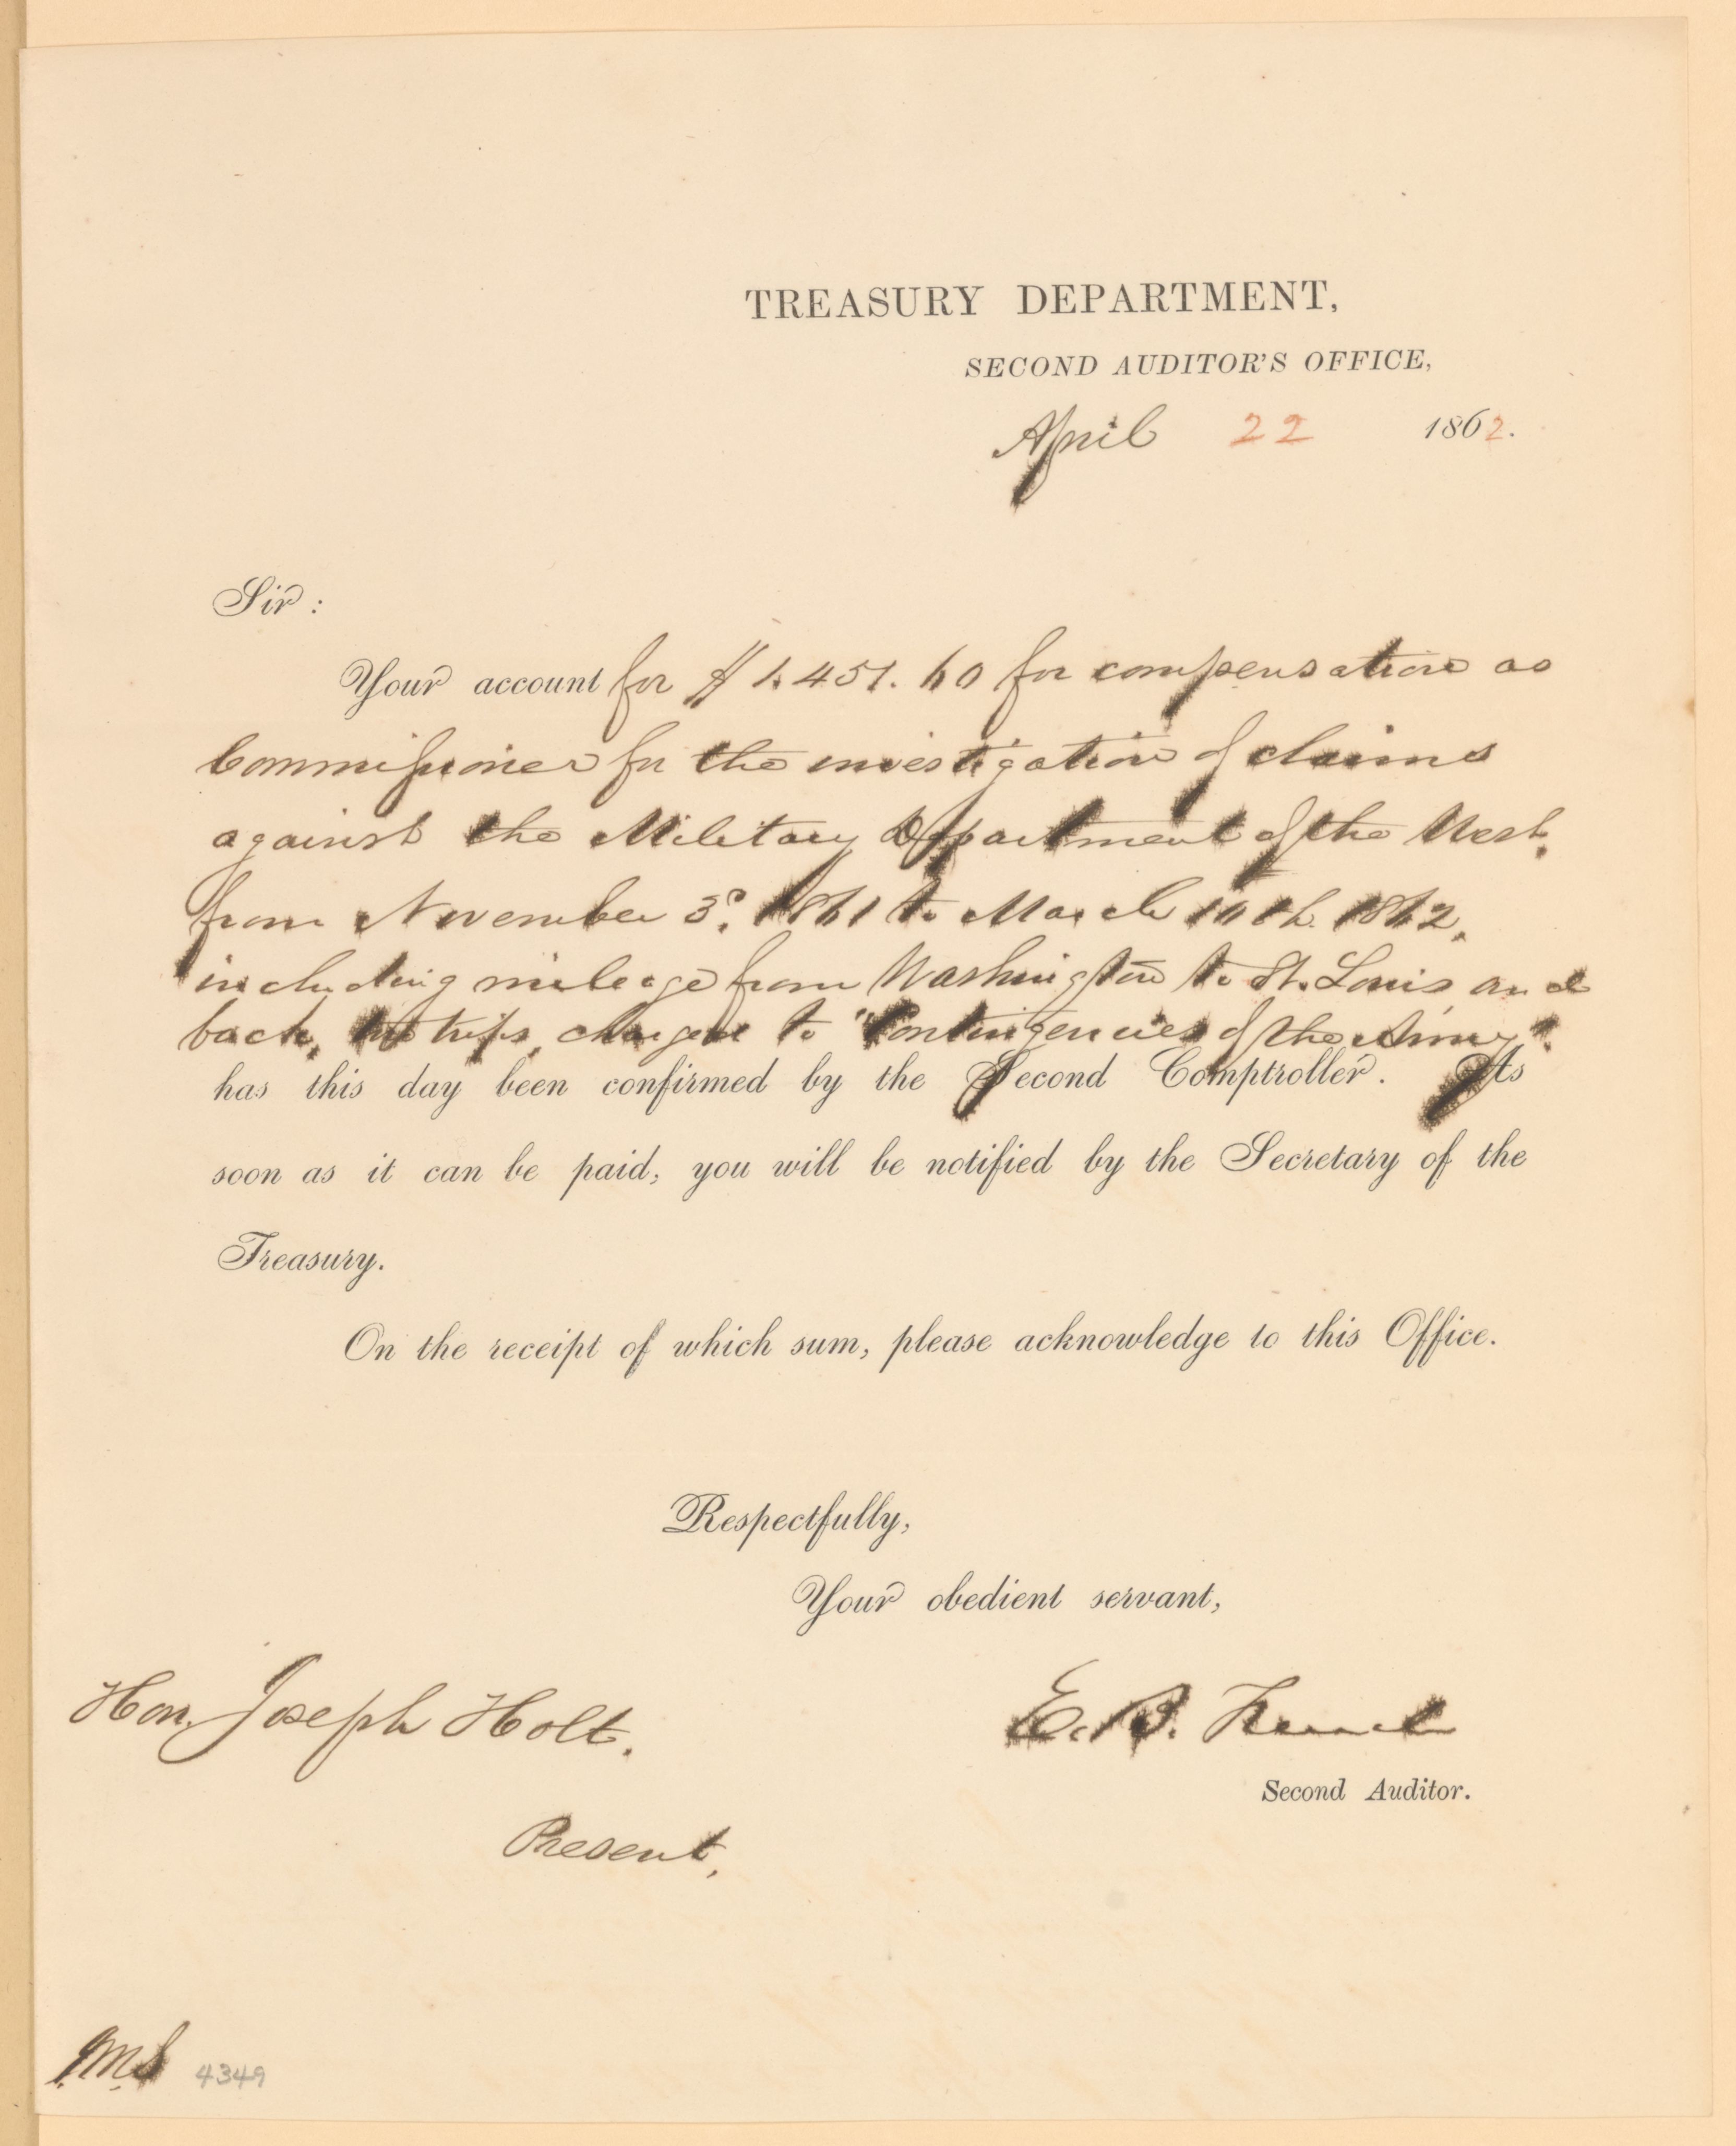 TREASURY DEPARTMENT,
SECOND AUDITOR'S OFFICE,
April 22 1862.
Sir :
Your account for $ 1.451.60 for compensation as
Commissioner for the investigation of claims
against the Military Department of the West,
from November 3d. 1861 to March 10th. 1862,
including mileage from Washington to St. Louis and
back, trips, charged to "Contingencies of the Army".
has this day been confirmed by the Second Comptroller. As
soon as it can be paid, you will be notified by the Secretary of the
Treasury.
On the receipt of which sum, please acknowledge to this Office.
Respectfully,
Your obedient servant,
Hon. Joseph Holt.
E. B. French
Second Auditor.
Present,
4349